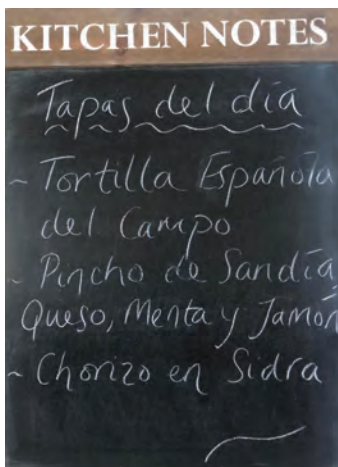 KITCHEN NOTES
Tapas del día
~ Tortilla Española
del Campo
~ Pincho de Sandía
Queso, Menta y Jamón
~ Chorizo en Sidra